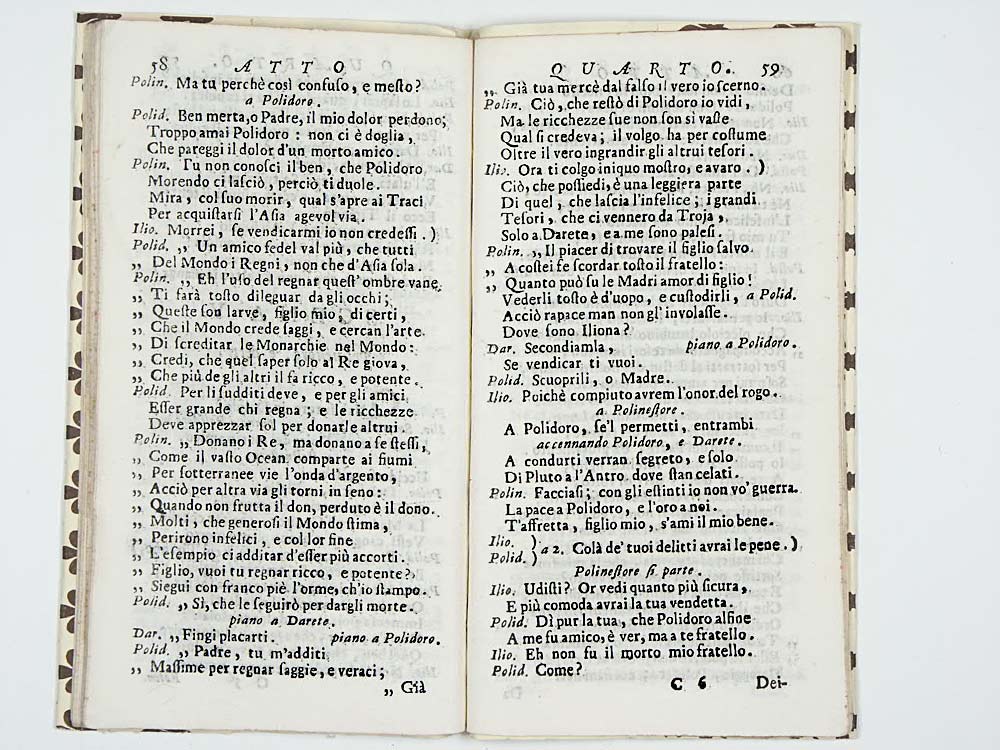 58 ATTO
Polin. Ma tu perchè così confuso, e mesto?
a Polidoro.
Polid. Ben merta, o Padre, il mio dolor perdono;
Troppo amai Polidoro : non ci è doglia,
Che pareggi il dolor d'un morto amico.
Polin. Tu non conosci il ben, che Polidoro
Morendo ci lasciò, perciò ti duole.
Mira, col suo morir, qual s'apre ai Traci
Per acquistarsi l'Asia agevol via.
Ilio. Morrei, se vendicarmi io non credessi. )
Polid. „ Un amico fedel val più, che tutti
„ Del Mondo i Regni, non che d'Asia sola.
Polin. „ Eh l'uso del regnar quest'ombre vane
„ Ti farà tosto dileguar dagli occhi;
„ Queste son larve, figlio mio, di certi,
„ Che il Mondo crede saggi, e cercan l'arte
„ Di screditar le Monarchie nel Mondo:
„ Credi, che quel saper solo al Re giova,
„ Che più degli altri il fa ricco, e potente.
Polid. Per li sudditi deve, e per gli amici
Esser grande chi regna; e le ricchezze
Deve apprezzar sol per donarle altrui.
Polin. „ Donano i Re, ma donano a se stessi,
„ Come il vasto Ocean comparte ai fiumi
„ Per sotterranee vie l'onda d'argento,
„ Acciò per altra via gli torni in seno:
„ Quando non frutta il don, perduto è il dono.
„ Molti, che generosi il Mondo stima,
„ Perirono infelici, e col lor fine
„ L'esempio ci additar d'esser più accorti.
„ Figlio, vuoi tu regnar ricco, e potente?
„ Siegui con franco piè l'orme, ch'io stampo.
Polid. „ Sì, che le seguirò per dargli morte.
piano a Darete.
Dar. „ Fingi placarti. piano a Polidoro.
Polid. „ Padre, tu m'additi
„ Massime per regnar saggie, e veraci;
„ Già
QUARTO. 59
„ Già tua mercè dal falso il vero io scerno.
Polin. Ciò, che restò di Polidoro io vidi,
Ma le ricchezze sue non son sì vaste
Qual si credeva; il volgo ha per costume
Oltre il vero ingrandir gli altrui tesori.
Ilio. Ora ti colgo iniquo mostro, e avaro. )
Ciò, che possiedi, è una leggiera parte
Di quel, che lascia l'infelice; i grandi
Tesori, che ci vennero da Troja,
Solo a Darete, e a me sono palesi.
Polin. „ Il piacer di trovare il figlio salvo
„ A costei fe scordar tosto il fratello:
„ Quanto può su le Madri amor di figlio!
Vederli tosto è d'uopo, e custodirli, a Polid.
Acciò rapace man non gl'involasse.
Dove sono Iliona?
Dar. Secondiamla, piano a Polidoro.
Se vendicar ti vuoi.
Polid. Scuoprili, o Madre.
Ilio. Poichè compiuto avrem l'onor del rogo.
a Polinestore.
A Polidoro, se'l permetti, entrambi
accennando Polidoro, e Darete.
A condurti verran segreto, e solo
Di Pluto a l'Antro dove stan celati.
Polin. Facciasi; con gli estinti io non vo' guerra.
La pace a Polidoro, e l'oro a noi.
T'affretta, figlio mio, s'ami il mio bene.
Ilio. )
Polid. ) a 2. Colà de' tuoi delitti avrai le pene. )
Polinestore si parte.
Ilio. Udisti? Or vedi quanto più sicura,
E più comoda avrai la tua vendetta.
Polid. Dì pur la tua, che Polidoro alfine
A me fu amico, è ver, ma a te fratello.
Ilio. Eh non fu il morto mio fratello.
Polid. Come?
C 6 Dei-